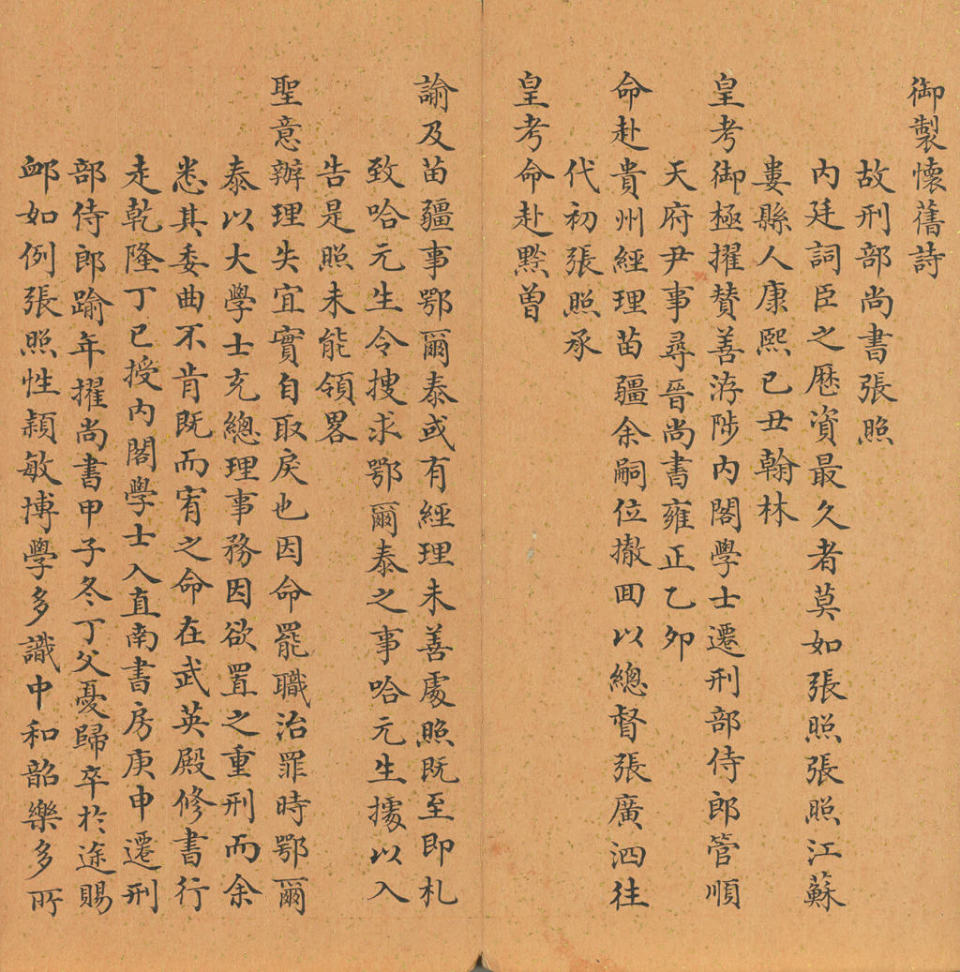 御製懷舊詩
故刑部尚書張照
內廷詞臣之歷資最久者莫如張照張照江蘇
婁縣人康熙己丑翰林
皇考御極擢贊善洊陟內閣學士遷刑部侍郎管順
天府尹事尋晉尚書雍正乙卯
命赴貴州經理苗疆余嗣位撤回以總督張廣泗往
代初張照承
皇考命赴黔曾
諭及苗疆事鄂爾泰或有經理未善處照既至即札
致哈元生令搜求鄂爾泰之事哈元生據以入
告是照未能領畧
聖意辦理失宜實自取戾也因命罷職治罪時鄂爾
泰以大學士充總理事務因欲置之重刑而余
悉其委曲不肯既而宥之命在武英殿修書行
走乾隆丁巳授內閣學士入直南書房庚申遷刑
部侍郎踰年擢尚書甲子冬丁父憂歸卒於途賜
卹如例張照性穎敏博學多識中和韶樂多所